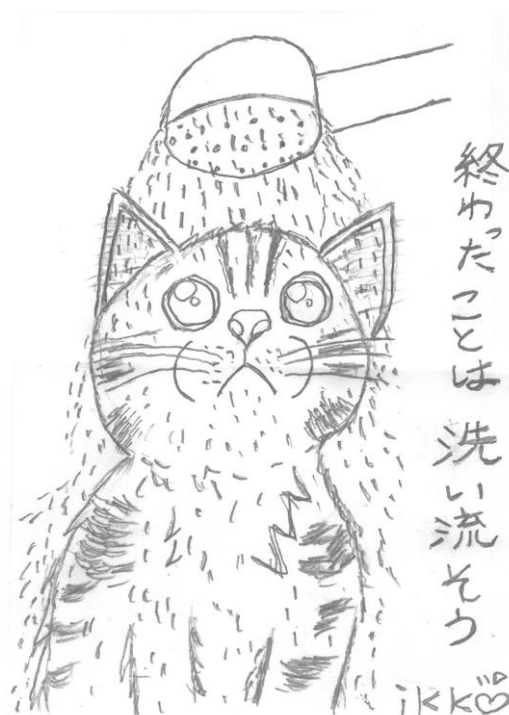 終わったことは 洗い流そう
ikko